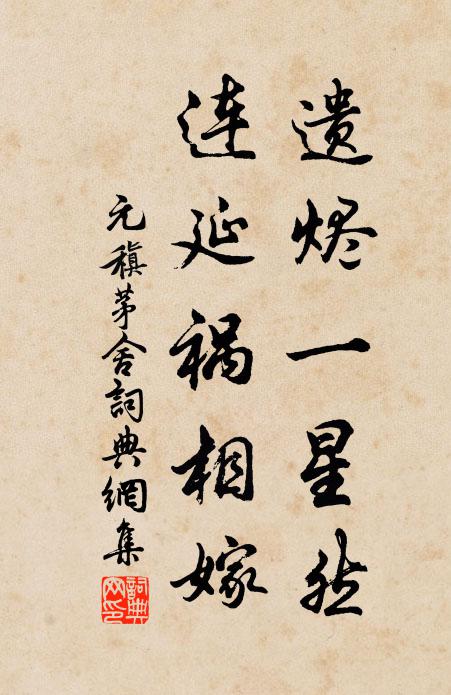 遗烬一星然
连延祸相嫁
元稹茅舍詞典網集
詞典網印